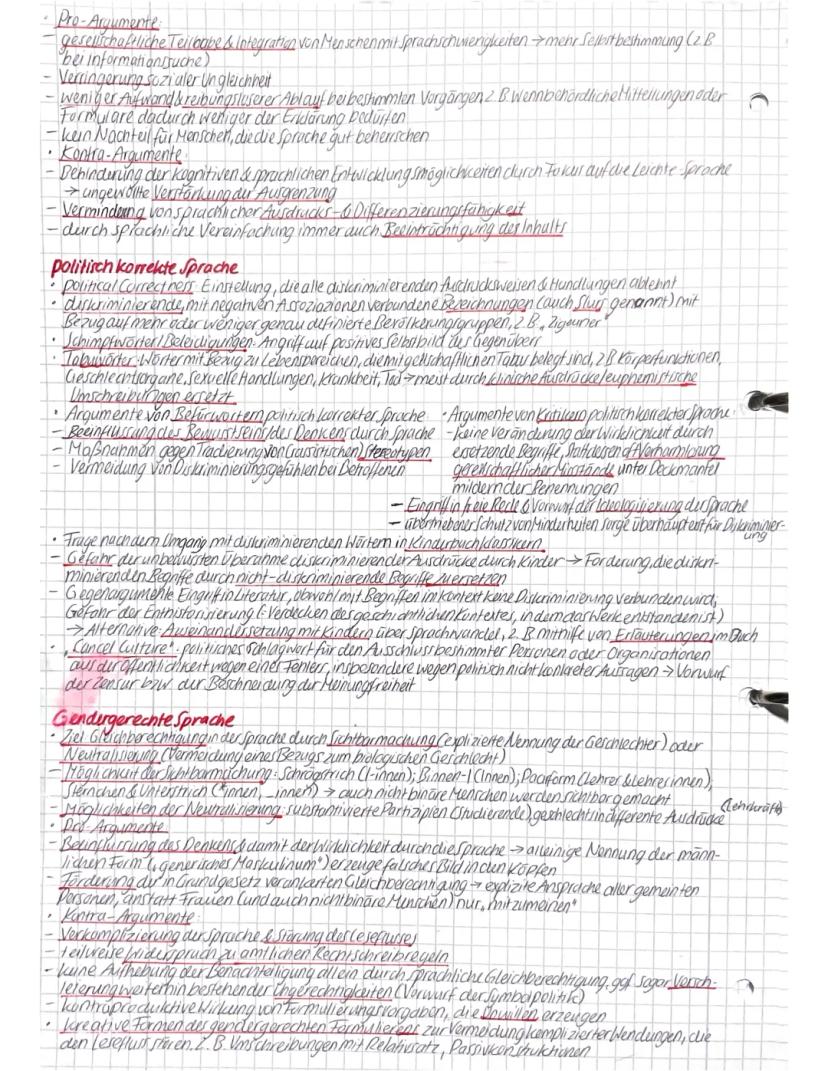 · Pro-Argumente:
– gesellschaftliche Teilhabe & Integration von Menschen mit Sprachschwierigkeiten → mehr Selbstbestimmung (z.B
bei Informationssuche)
– Verringerung sozialer Ungleichheit
– weniger Aufwand & reibungsloserer Ablauf bei bestimmten Vorgängen, z.B. wenn behördliche Mitteilungen oder
Formulare dadurch weniger der Erklärung bedürfen
– kein Nachteil für Menschen, die die Sprache gut beherrschen
· Kontra-Argumente:
– Behinderung der kognitiven & sprachlichen Entwicklungsmöglichkeiten durch Fokus auf die Leichte Sprache
→ ungewollte Verstärkung der Ausgrenzung
– Verminderung von sprachlicher Ausdrucks- & Differenzierungsfähigkeit
– durch sprachliche Vereinfachung immer auch Beeinträchtigung des Inhalts
politisch korrekte Sprache
· political Correctness: Einstellung, die alle diskriminierenden Ausdrucksweisen & Handlungen ablehnt
· diskriminierende, mit negativen Assoziazionen verbundene Bezeichnungen (auch Slurs genannt) mit
Bezug auf mehr oder weniger genau definierte Bevölkerungsgruppen, z.B. „Zigeuner"
· Schimpfwörter/Beleidigungen: Angriff auf positives Selbstbild des Gegenübers
· Tabuwörter: Wörter mit Bezug zu Lebensbereichen, die mit gesellschaftlichen Tabus belegt sind, z.B Körperfunktionen,
Geschlechtsorgane, sexuelle Handlungen, Krankheit, Tod → meist durch klinische Ausdrücke/euphemistische
Umschreibungen ersetzt
· Argumente von Befürwortern politisch korrekter Sprache
– Beeinflussung des Bewusstseins/des Denkens durch Sprache
– Maßnahmen gegen Tradierung von (rassistischen) Stereotypen
– Vermeidung von Diskriminierungsgefühlen bei Betroffenen
· Argumente von Kritikern politisch korrekter Sprache:
– keine Veränderung der Wirklichkeit durch
ersetzende Begriffe, stattdessen oft Verharmlosung
gesellschaftlicher Missstände unter Deckmantel
mildernder Benennungen
– Eingriff in freie Rede & Vorwurf der Ideologisierung der Sprache
– übertriebener Schutz von Minderheiten sorge überhaupt erst für Diskriminier-
ung
· Frage nach dem Umgang mit diskriminierenden Wörtern in Kinderbuchklassikern
– Gefahr der unbewussten Übernahme diskriminierender Ausdrücke durch Kinder → Forderung, die diskri-
minierenden Begriffe durch nicht-diskriminierende Begriffe zu ersetzen
– Gegenargumente: Eingriff in Literatur, obwohl mit Begriffen im Kontext keine Diskriminierung verbunden wird;
Gefahr der Enthistorisierung (=Verdecken des geschichtlichen Kontextes, in dem das Werk entstanden ist)
→ Alternative: Auseinandersetzung mit Kindern über Sprachwandel, z.B mithilfe von Erläuterungen im Buch
· „Cancel Culture": politisches Schlagwort für den Ausschluss bestimmter Personen oder Organisationen
aus der Öffentlichkeit wegen eines Fehlers, insbesondere wegen politisch nicht korrekter Aussagen → Vorwurf
der Zensur bzw. der Beschneidung der Meinungsfreiheit
Gendergerechte Sprache
· Ziel: Gleichberechtigung in der Sprache durch Sichtbarmachung (explizierte Nennung der Geschlechter) oder
Neutralisierung (Vermeidung eines Bezugs zum biologischen Geschlecht)
– Möglichkeit der Sichtbarmachung: Schrägstrich (/-innen); Binnen-I (Innen); Paarform (Lehrer & Lehrerinnen),
Sternchen & Unterstrich (*innen, _innen) → auch nicht binäre Menschen werden sichtbar gemacht
– Möglichkeiten der Neutralisierung: substantivierte Partizipien (Studierende) geschlechtsindifferente Ausdrücke (Lehrkraft)
· Pro-Argumente:
– Beeinflussung des Denkens & damit der Wirklichkeit durch die Sprache → alleinige Nennung der männ-
lichen Form („generisches Maskulinum") erzeuge falsches Bild in den Köpfen
– Förderung der in Grundgesetz verankerten Gleichberechtigung → explizite Ansprache aller gemeinten
Personen, anstatt Frauen (und auch nichtbinäre Menschen) nur „mitzumeinen"
· Kontra-Argumente:
– Verkomplizierung der Sprache & Störung des Leseflusses
– teilweise Widerspruch zu amtlichen Rechtschreibregeln
– keine Aufhebung der Benachteiligung allein durch sprachliche Gleichberechtigung, ggf. sogar Versch-
leierung weiterhin bestehender Ungerechtigkeiten (Vorwurf der Symbolpolitik)
– kontraproduktive Wirkung von Formulierungsvorgaben, die Unwillen erzeugen
· kreative Formen des gendergerechten Formulierens zur Vermeidung komplizierter Wendungen, die
den Lesefluss stören. z.B. Umschreibungen mit Relativsatz, Passivkonstruktionen